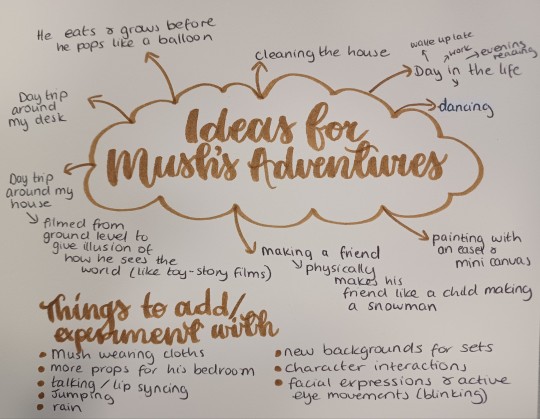 He eats & grows before
he pops like a balloon
cleaning the house
wake up late
work
evening
reading
Day in the life
dancing
Day trip
around
my desk
Ideas for
Mush's Adventures
Day trip
around my
house
filmed from
ground level to
give illusion of
how he sees the
world (like toy-story films)
making a friend
physically
makes his
friend like a child making
a snowman
painting with
an easel &
mini canvas
Things to add/
experiment with
• Mush wearing cloths
• more props for his bedroom
• talking / lip syncing
• Jumping
• rain
• new backgrounds for sets
• character interactions
• facial expressions & active
eye movements (blinking)